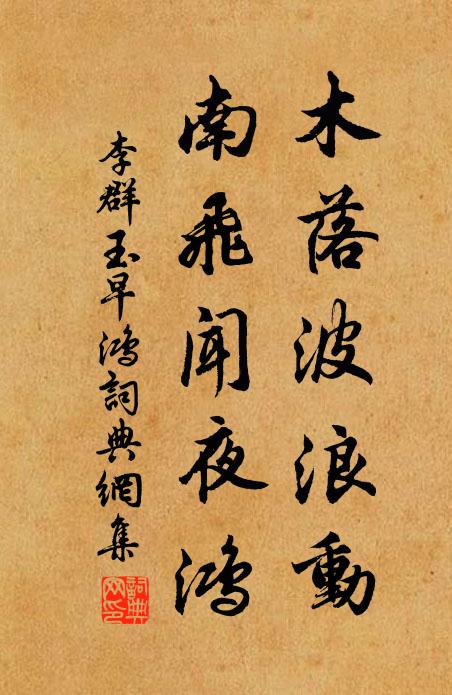 木落波浪動
南飛聞夜鴻
李群玉早鴻詞典網集
詞典網印